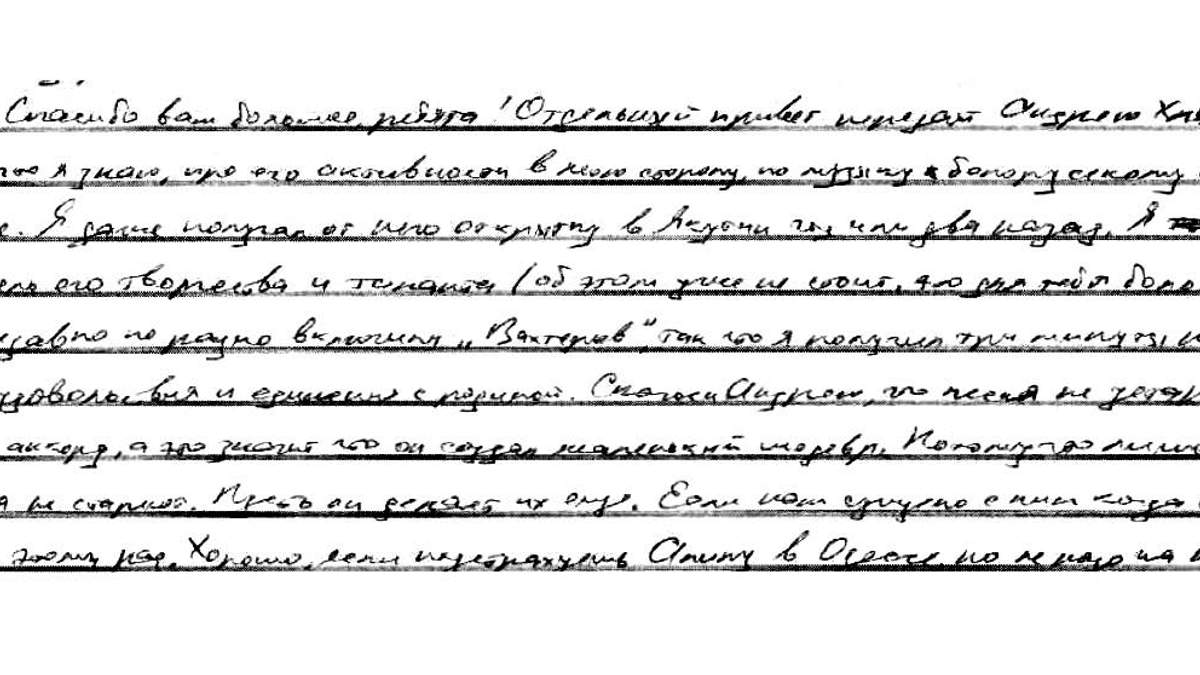 Спасибо вам большое, ребята! Отдельный привет передай Андрею
что я знаю, про его активность в мою сторону, по музыку к белорусскому
е. Я даже получал от него открытку в Якутии год или два назад. Я
его творчества и таланта (об этом уже не стоит, это для тебя
по радио включили „Вахтёров“, так что я получил три минуты
удовольствия и единения с родиной. Скажи Андрею, что песня не
аккорд, а это значит что он создал маленький шедевр. Потому что
я не стареют. Пусть он делает их ещё. Если нам суждено с ним когда
этому рад. Хорошо, если подстрахуешь Алину в Одессе но не надо на